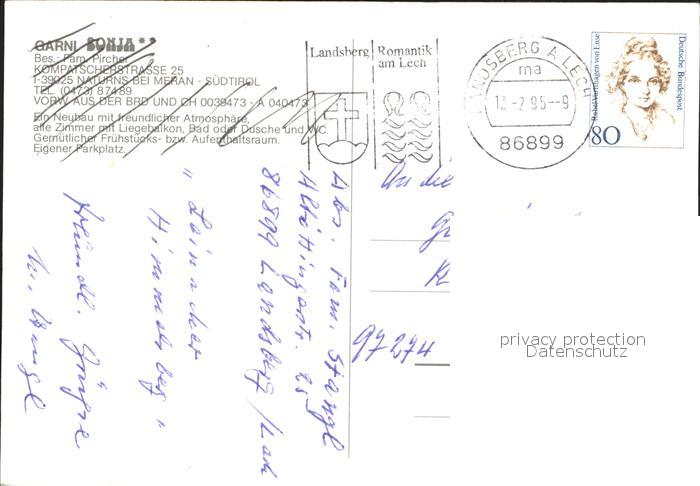 GARNI SONJA**
Bes.: Fam. Pircher
KOMPATSCHERSTRASSE 25
I-39025 NATURNS BEI MERAN - SÜDTIROL
TEL. (0473) 87489
VORW AUS DER BRD UND CH 0039473 - A 040473
Ein Neubau mit freundlicher Atmosphäre,
alle Zimmer mit Liegebalkon, Bad oder Dusche und WC.
Gemütlicher Frühstücks- bzw. Aufenthaltsraum.
Eigener Parkplatz.
Landsberg
Romantik
am Lech
LANDSBERG A LECH
ma
13-2 95--9
86899
Deutsche Bundespost
Rahel Varnhagen von Ense
80
Abs. Fam. Stangl
Altöttingerstr. 25
86899 Landsberg/Lech
"Leinacher
Himmelberg"
Freundl. Grüße
M. Stangl
An die
97274
privacy protection
Datenschutz